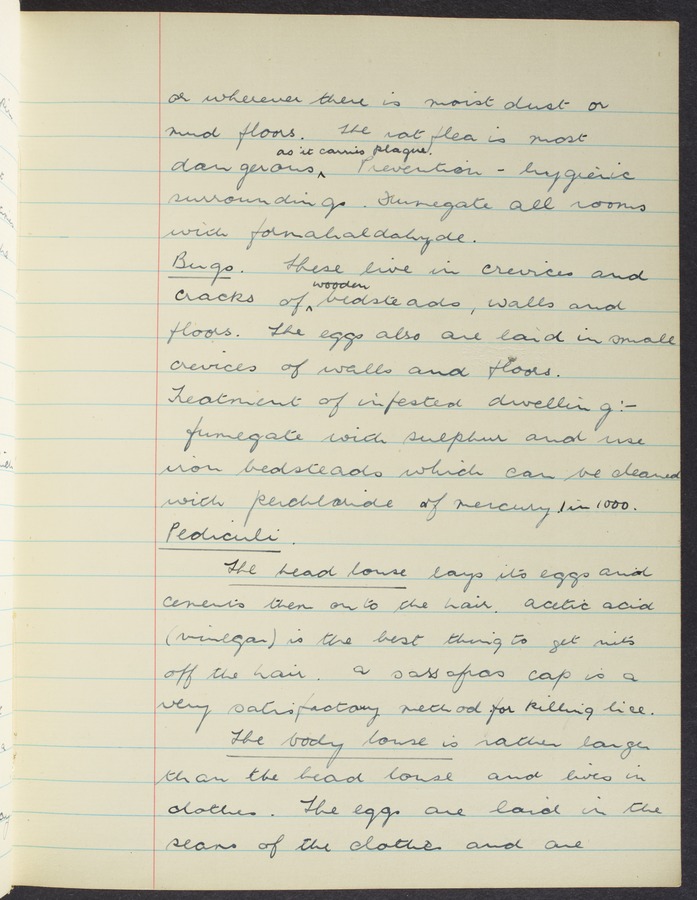 or wherever there is moist dust or
mud floors. The rat flea is most
as it carries plague.
dangerous, Prevention - hygienic
surroundings. Fumegate all rooms
with formahaldahyde.
Bugs. These live in crevices and
wooden
cracks of bedsteads, walls and
floors. The eggs also are laid in small
crevices of walls and floors.
Treatment of infested dwelling:-
fumegate with sulphur and use
iron bedsteads which can be cleaned
with perchloride of mercury 1 in 1000.
Pediculi.
The head louse lays its eggs and
cements them on to the hair. Acetic acid
(vinegar) is the best thing to get nits
off the hair. A sassafras cap is a
very satisfactory method for killing lice.
The body louse is rather larger
than the head louse and lives in
clothes. The eggs are laid in the
seams of the clothes and are